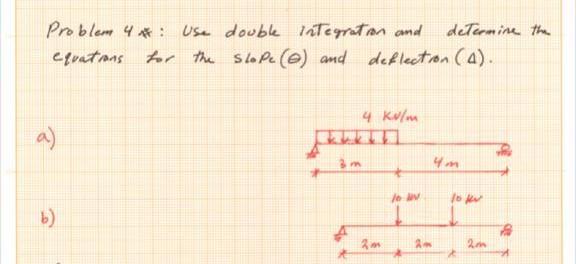 Problem 4 * : Use double integration and determine the
equations for the slope (θ) and deflection (Δ).
4 KN/m
a)
3 m 4 m
10 KN 10 KN
b)
2m 2m 2m